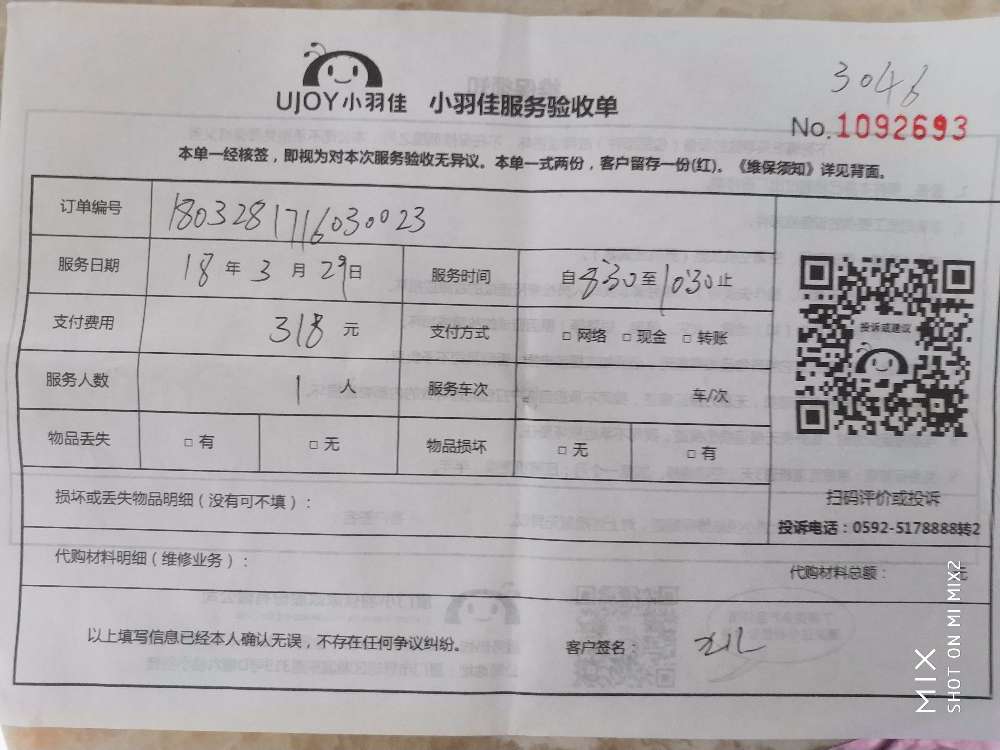 3046
UJOY小羽佳 小羽佳服务验收单
No.1092693
本单一经核签，即视为对本次服务验收无异议。本单一式两份，客户留存一份(红)。《维保须知》详见背面。
订单编号 180328171603 0023
服务日期 18 年 3 月 29 日 服务时间 自 8:30 至 10:30 止
支付费用 318 元 支付方式 □ 网络 □ 现金 □ 转账
服务人数 1 人 服务车次 车/次
物品丢失 □ 有 □ 无 物品损坏 □ 无 □ 有
投诉或建议
扫码评价或投诉
投诉电话：0592-5178888转2
损坏或丢失物品明细（没有可不填）：
代购材料明细（维修业务）：
代购材料总额： 元
以上填写信息已经本人确认无误，不存在任何争议纠纷。 客户签名：
MIX
SHOT ON MI MIX2